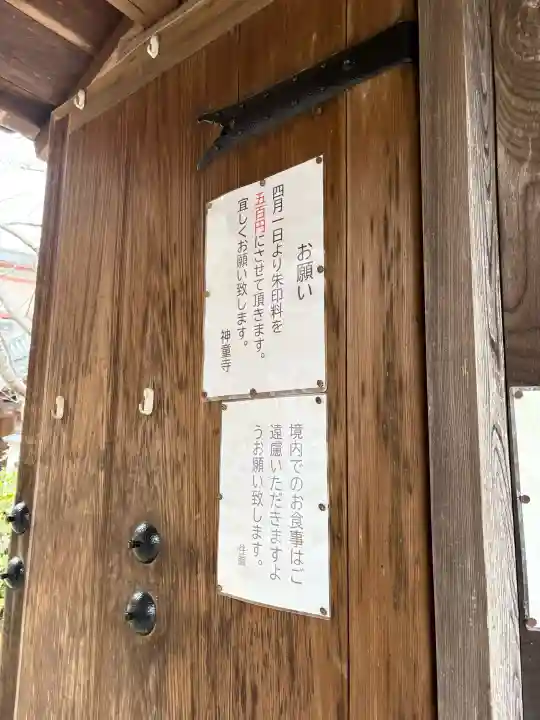 お願い
四月一日より朱印料を
五百円にさせて頂きます。
宜しくお願い致します。
神童寺
境内でのお食事はご
遠慮いただきますよ
うお願い致します。